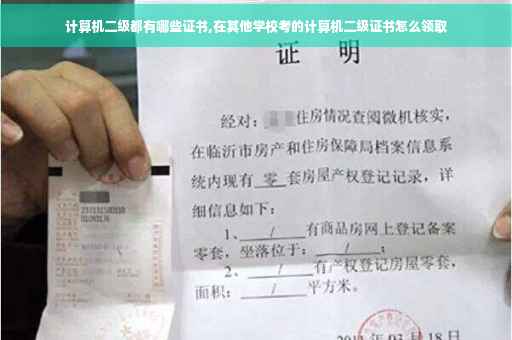 计算机二级都有哪些证书,在其他学校考的计算机二级证书怎么领取
证 明
经对: 住房情况查阅微机核实,
在临沂市房产和住房保障局档案信息系
统内现有 零 套房屋产权登记记录,详
细信息如下:
1、 / 有商品房网上登记备案
零套,坐落位于: / ;
2、 / 有产权登记房屋零套,
面积: / 平方米。
18日